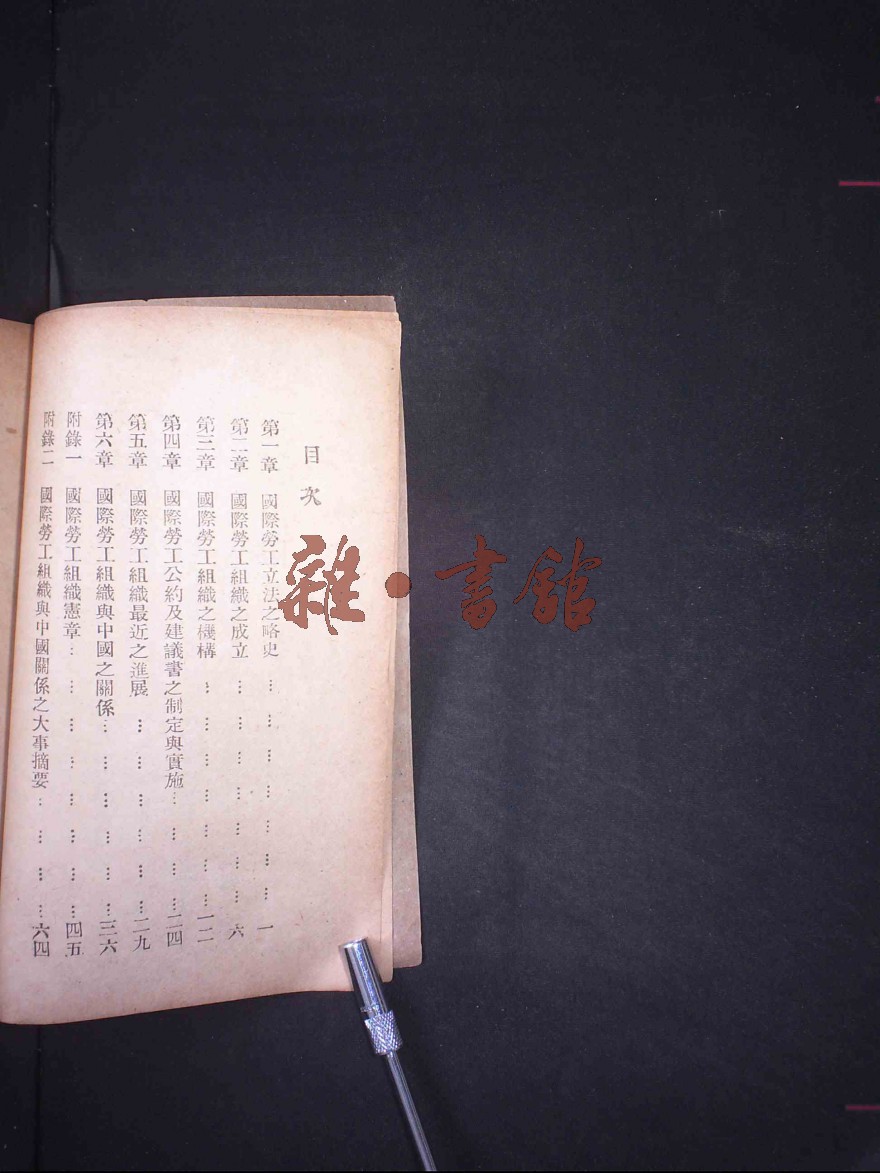 目次
第一章 國際勞工立法之略史………………一
第二章 國際勞工組織之成立………………六
第三章 國際勞工組織之機構………………一二
第四章 國際勞工公約及建議書之制定與實施…………二四
第五章 國際勞工組織最近之進展……………二九
第六章 國際勞工組織與中國之關係……………三六
附錄一 國際勞工組織憲章………………四五
附錄二 國際勞工組織與中國關係之大事摘要…………六四
雜·書館